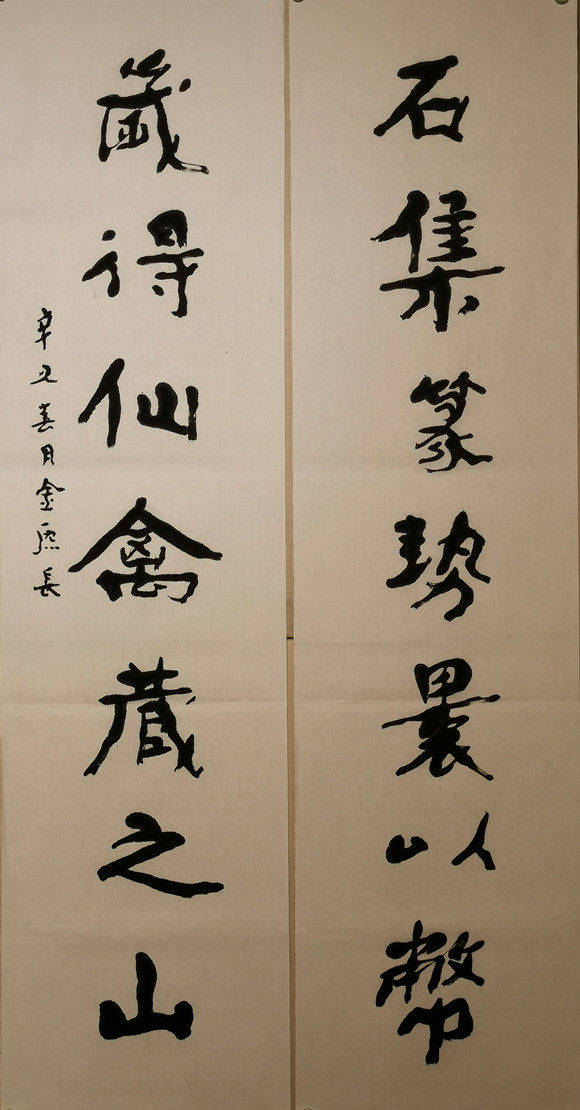 石集篆勢以幣
箴得仙禽藏之山
辛丑春月金長